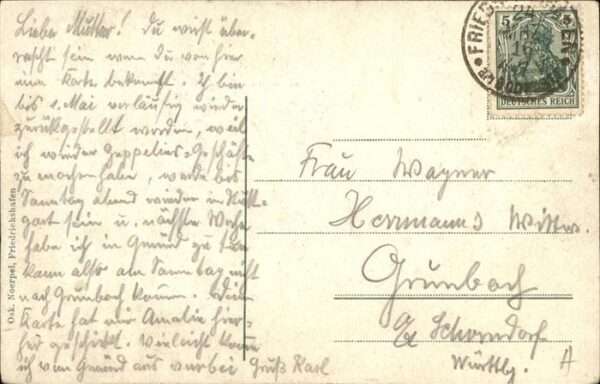 Liebe Mutter! Du wirst über-
rascht sein wenn du von hier
eine Karte bekommst. Ich bin
bis 1. Mai vorläufig wieder
zurückgestellt worden, weil
ich wieder Zeppelin-Geschäfte
zu machen habe, werde bis
Samstag abend wieder in Stutt-
gart sein u. nächste Woche
habe ich in Gmünd zu tun
kann also am Samstag nicht
nach Grunbach kommen. Deine
Karte hat mir Amalie hier-
her geschickt. Vielleicht komme
ich von Gmünd aus vorbei Gruß Karl
Osk. Noerpel, Friedrichshafen
5
DEUTSCHES REICH
Frau Wagner
Herrmanns Wittw.
Grunbach
O/A Schorndorf
Württbg.